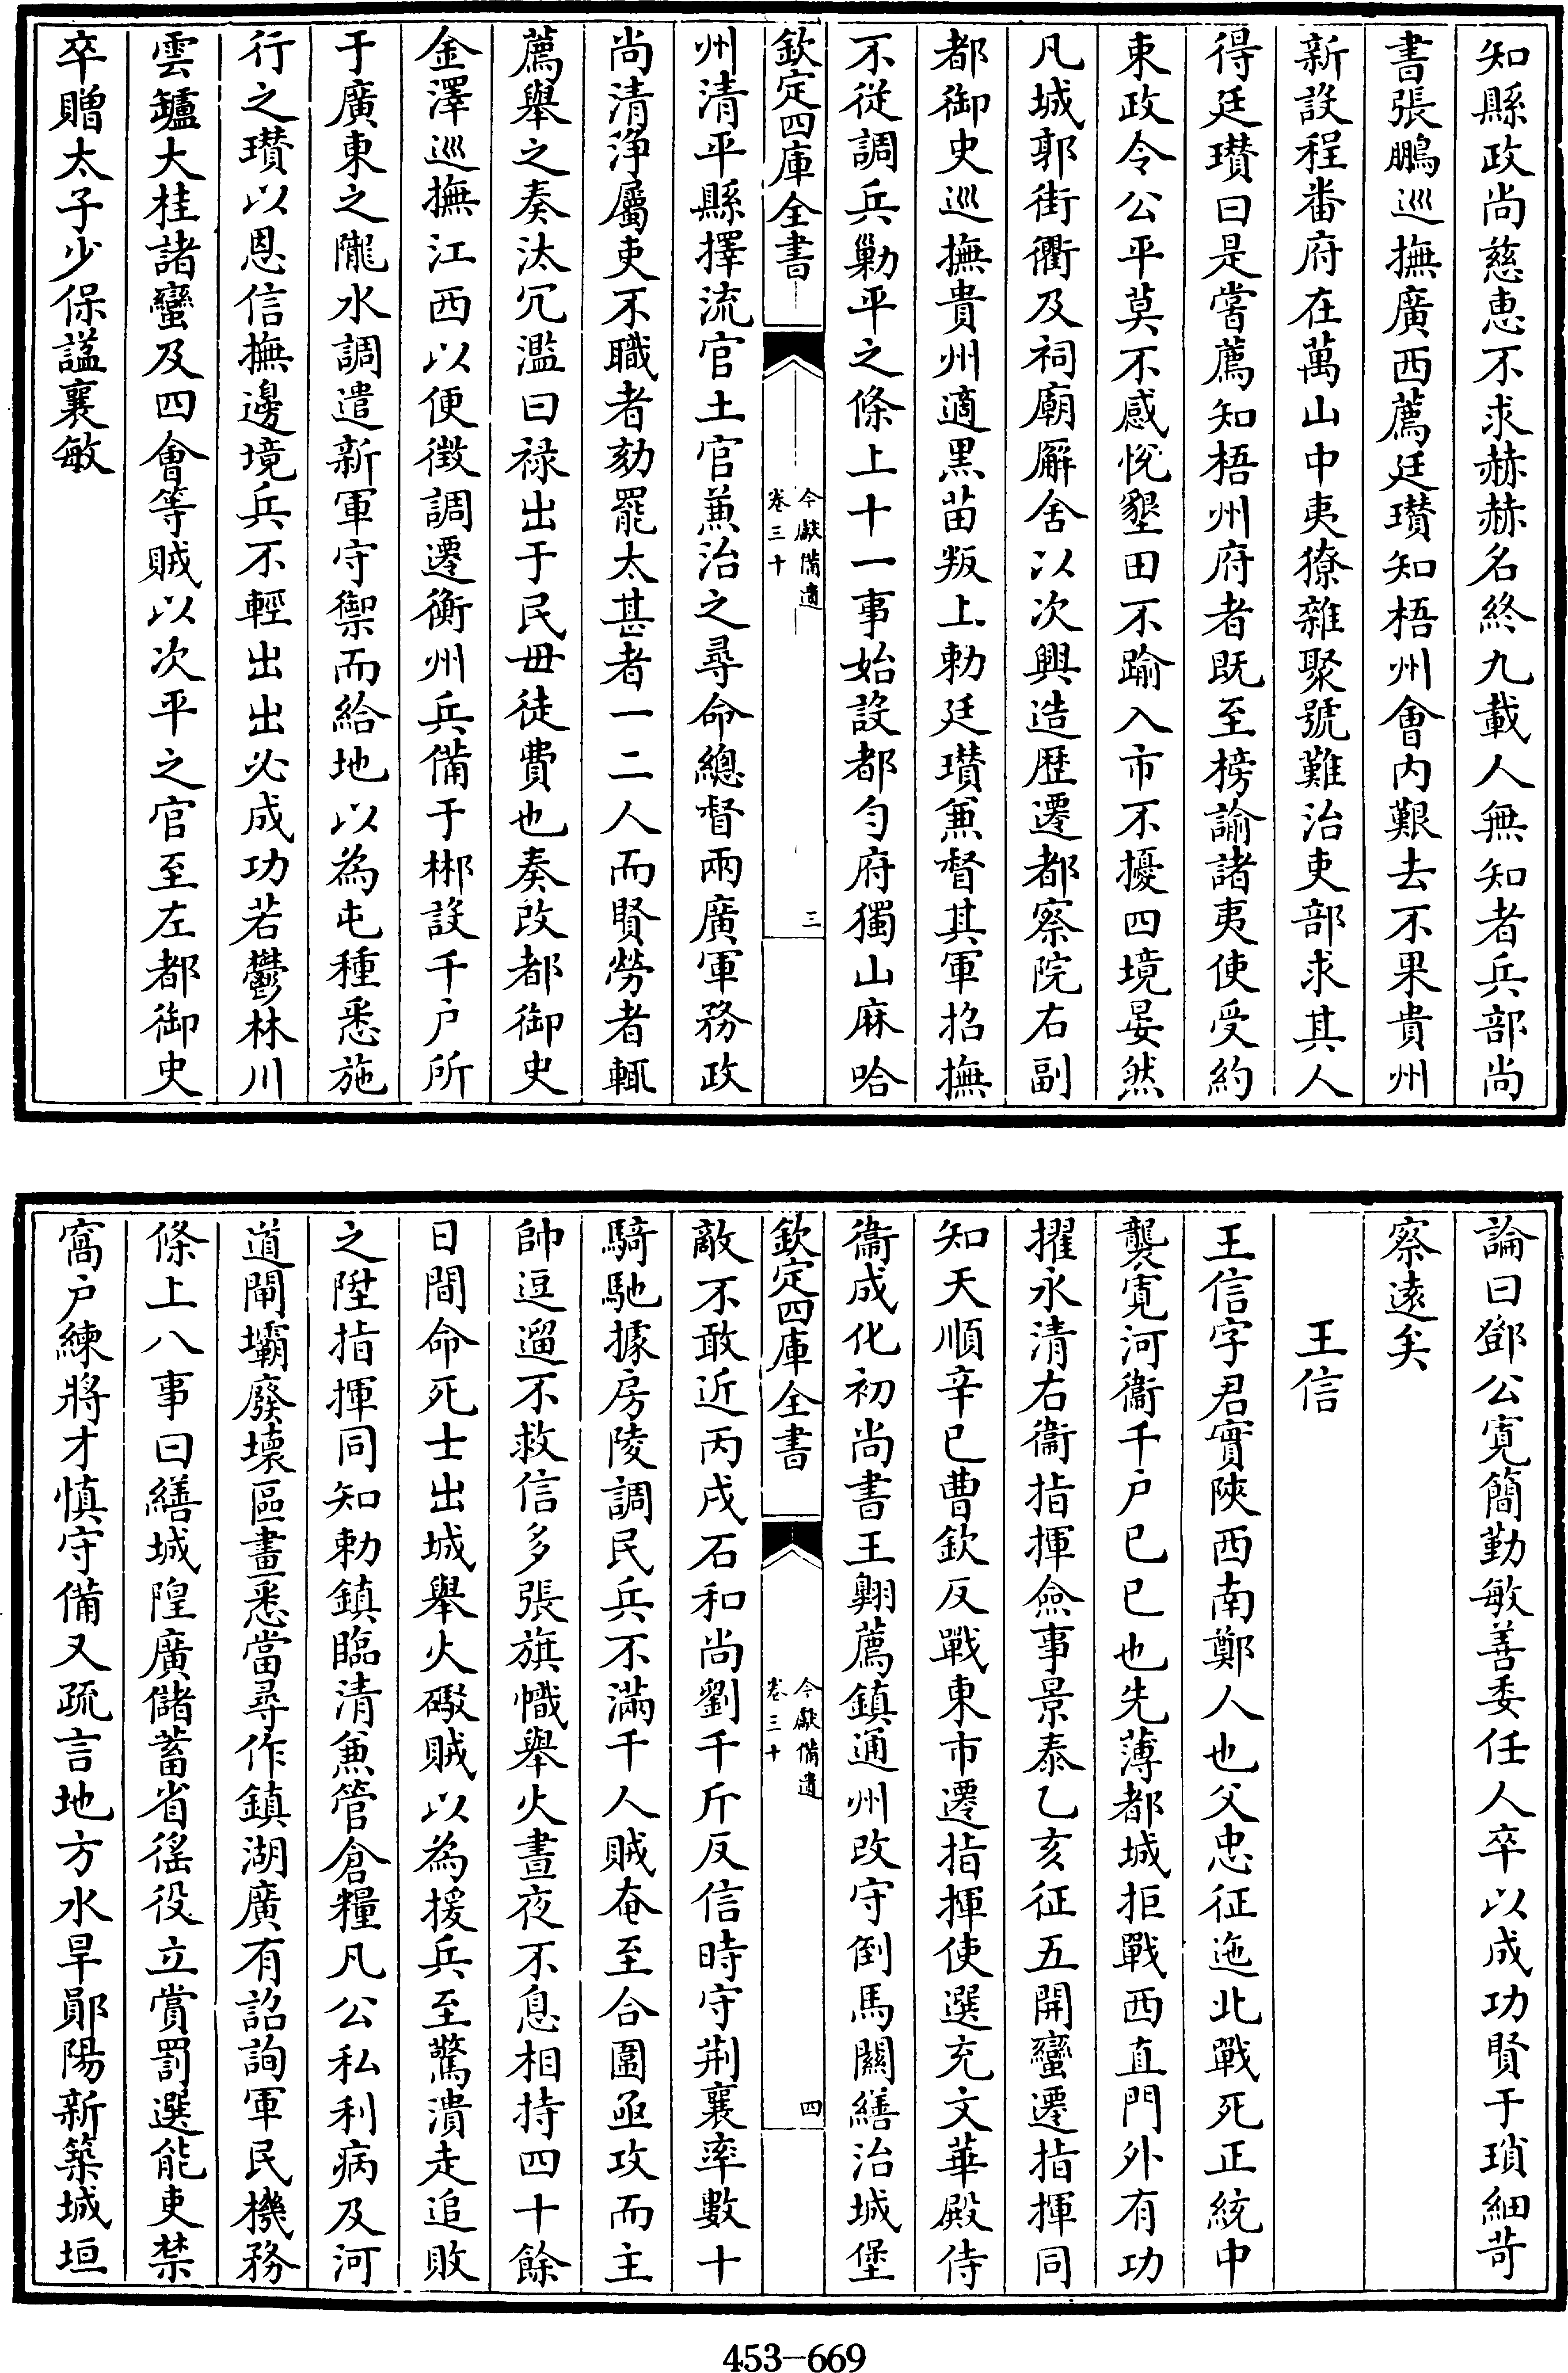 知縣政尚慈恵不求赫赫名終九載人無知者兵部尚
書張鵬巡撫廣西薦廷瓚知梧州會内艱去不果貴州
新設程番府在萬山中夷獠雜聚號難治吏部求其人
得廷瓚曰是嘗薦知梧州府者既至榜諭諸夷使受約
東政令公平莫不感悅墾田不踰入市不擾四境晏然
凡城郭街衢及祠廟廨舍以次興造歴遷都察院右副
都御史巡撫貴州適黑苗叛上勅廷瓚兼督其軍招撫
不從調兵勦平之條上十一事始設都勻府獨山麻哈
欽定四庫全書
今獻備遺
卷三十
三
州清平縣擇流官土官兼治之尋命總督兩廣軍務政
尚清浄屬吏不職者劾罷太甚者一二人而賢勞者輒
薦舉之奏汰冗濫曰禄出于民毋徒費也奏改都御史
金澤巡撫江西以便徵調遷衡州兵備于郴設千户所
于廣東之隴水調遣新軍守禦而給地以為屯種悉施
行之瓚以恩信撫邊境兵不輕出出必成功若鬱林川
雲鑪大桂諸蠻及四會等賊以次平之官至左都御史
卒贈太子少保諡襄敏
論曰鄧公寛簡勤敏善委任人卒以成功賢于瑣細苛
察逺矣
王信
王信字君實陜西南鄭人也父忠征迤北戰死正統中
襲寛河衞千户已巳也先薄都城拒戰西直門外有功
擢永清右衞指揮僉事景泰乙亥征五開蠻遷指揮同
知天順辛巳曹欽反戰東市遷指揮使選充文華殿侍
衞成化初尚書王翺薦鎮通州改守倒馬關繕治城堡
欽定四庫全書
今獻備遺
卷三十
四
敵不敢近丙戌石和尚劉千斤反信時守荆襄率數十
騎馳據房陵調民兵不滿千人賊奄至合圍亟攻而主
帥逗遛不救信多張旗幟舉火晝夜不息相持四十餘
日間命死士出城舉火礮賊以為援兵至驚潰走追敗
之陞指揮同知勅鎮臨清兼管倉糧凡公私利病及河
道閘壩廢壊區畫悉當尋作鎮湖廣有詔詢軍民機務
條上八事曰繕城隍廣儲蓄省徭役立賞罰選能吏禁
窩户練將才慎守備又疏言地方水旱鄖陽新築城垣
453-669